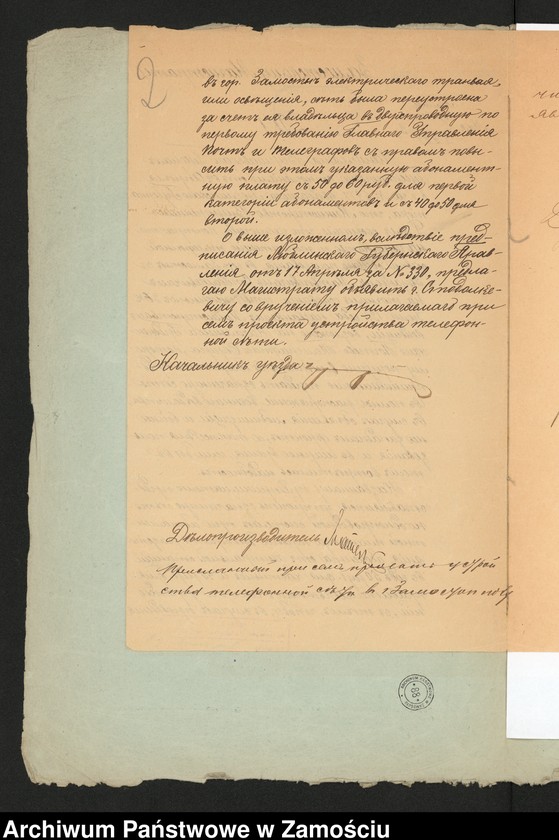 2
въ гор. Замостьѣ электрическаго трамвая,
или освѣщенія, сѣть была переустроена
за счетъ ея владѣльца въ двухпроводную по
первому требованію Главнаго Управленія
Почтъ и Телеграфовъ съ правомъ повы-
сить при этомъ указанную абонамент-
ную плату съ 50 до 60 руб. для первой
категоріи абонаментовъ и съ 40 до 50 для
второй.
О выше изложенномъ, вслѣдствіе пред-
писанія Люблинскаго Губернскаго Прав-
ленія отъ 17 Апрѣля за № 330, предла-
гаю Магистрату объявить г.
вичу со врученіемъ прилагаемаго при
семъ проекта устройства телефон-
ной сѣти.
Начальникъ уѣзда
Дѣлопроизводитель
при семъ проектъ устрой
ства телефонной сѣти в г Замостьи
ARCHIWUM PAŃSTWOWE
88
Archiwum Państwowe w Zamościu